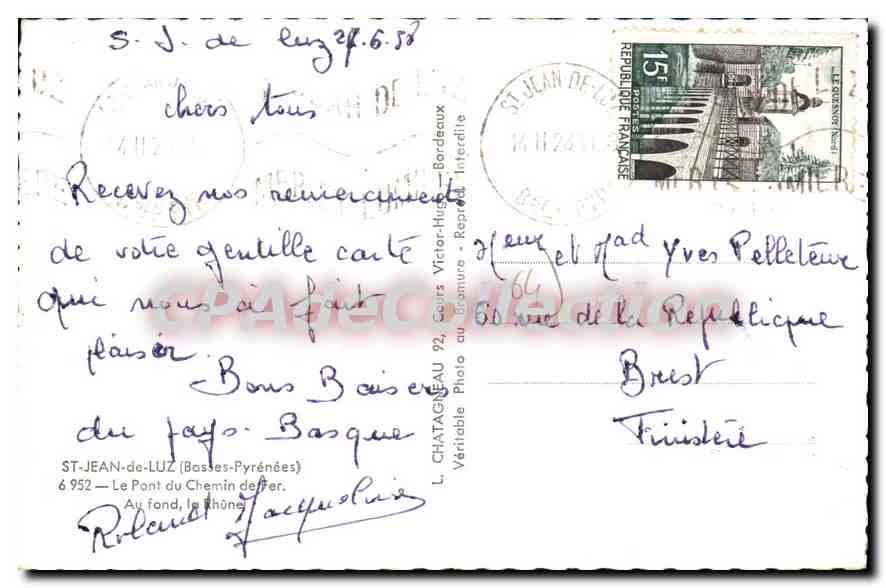 S. J. de luz 27.6.58
chers tous
Recevez nos remerciments
de votre gentille carte
qui nous à fait
plaisir.
Bons Baisers
du pays-Basque
ST-JEAN-de-LUZ (Basses-Pyrénées)
6 952 — Le Pont du Chemin de Fer.
Au fond, la Rhûne
Roland Jacqueline
L. CHATAGNEAU 92, Cours Victor-Hugo Bordeaux
Véritable Photo au Bromure - Reprod. Interdite
ST JEAN-DE-LUZ
15F
POSTES
REPUBLIQUE FRANÇAISE
LE QUESNOY (Nord)
Meur et Mad Yves Pelleteur
(64)
60 rue de la Republicque
Brest
Finistère
CPAdeCollection